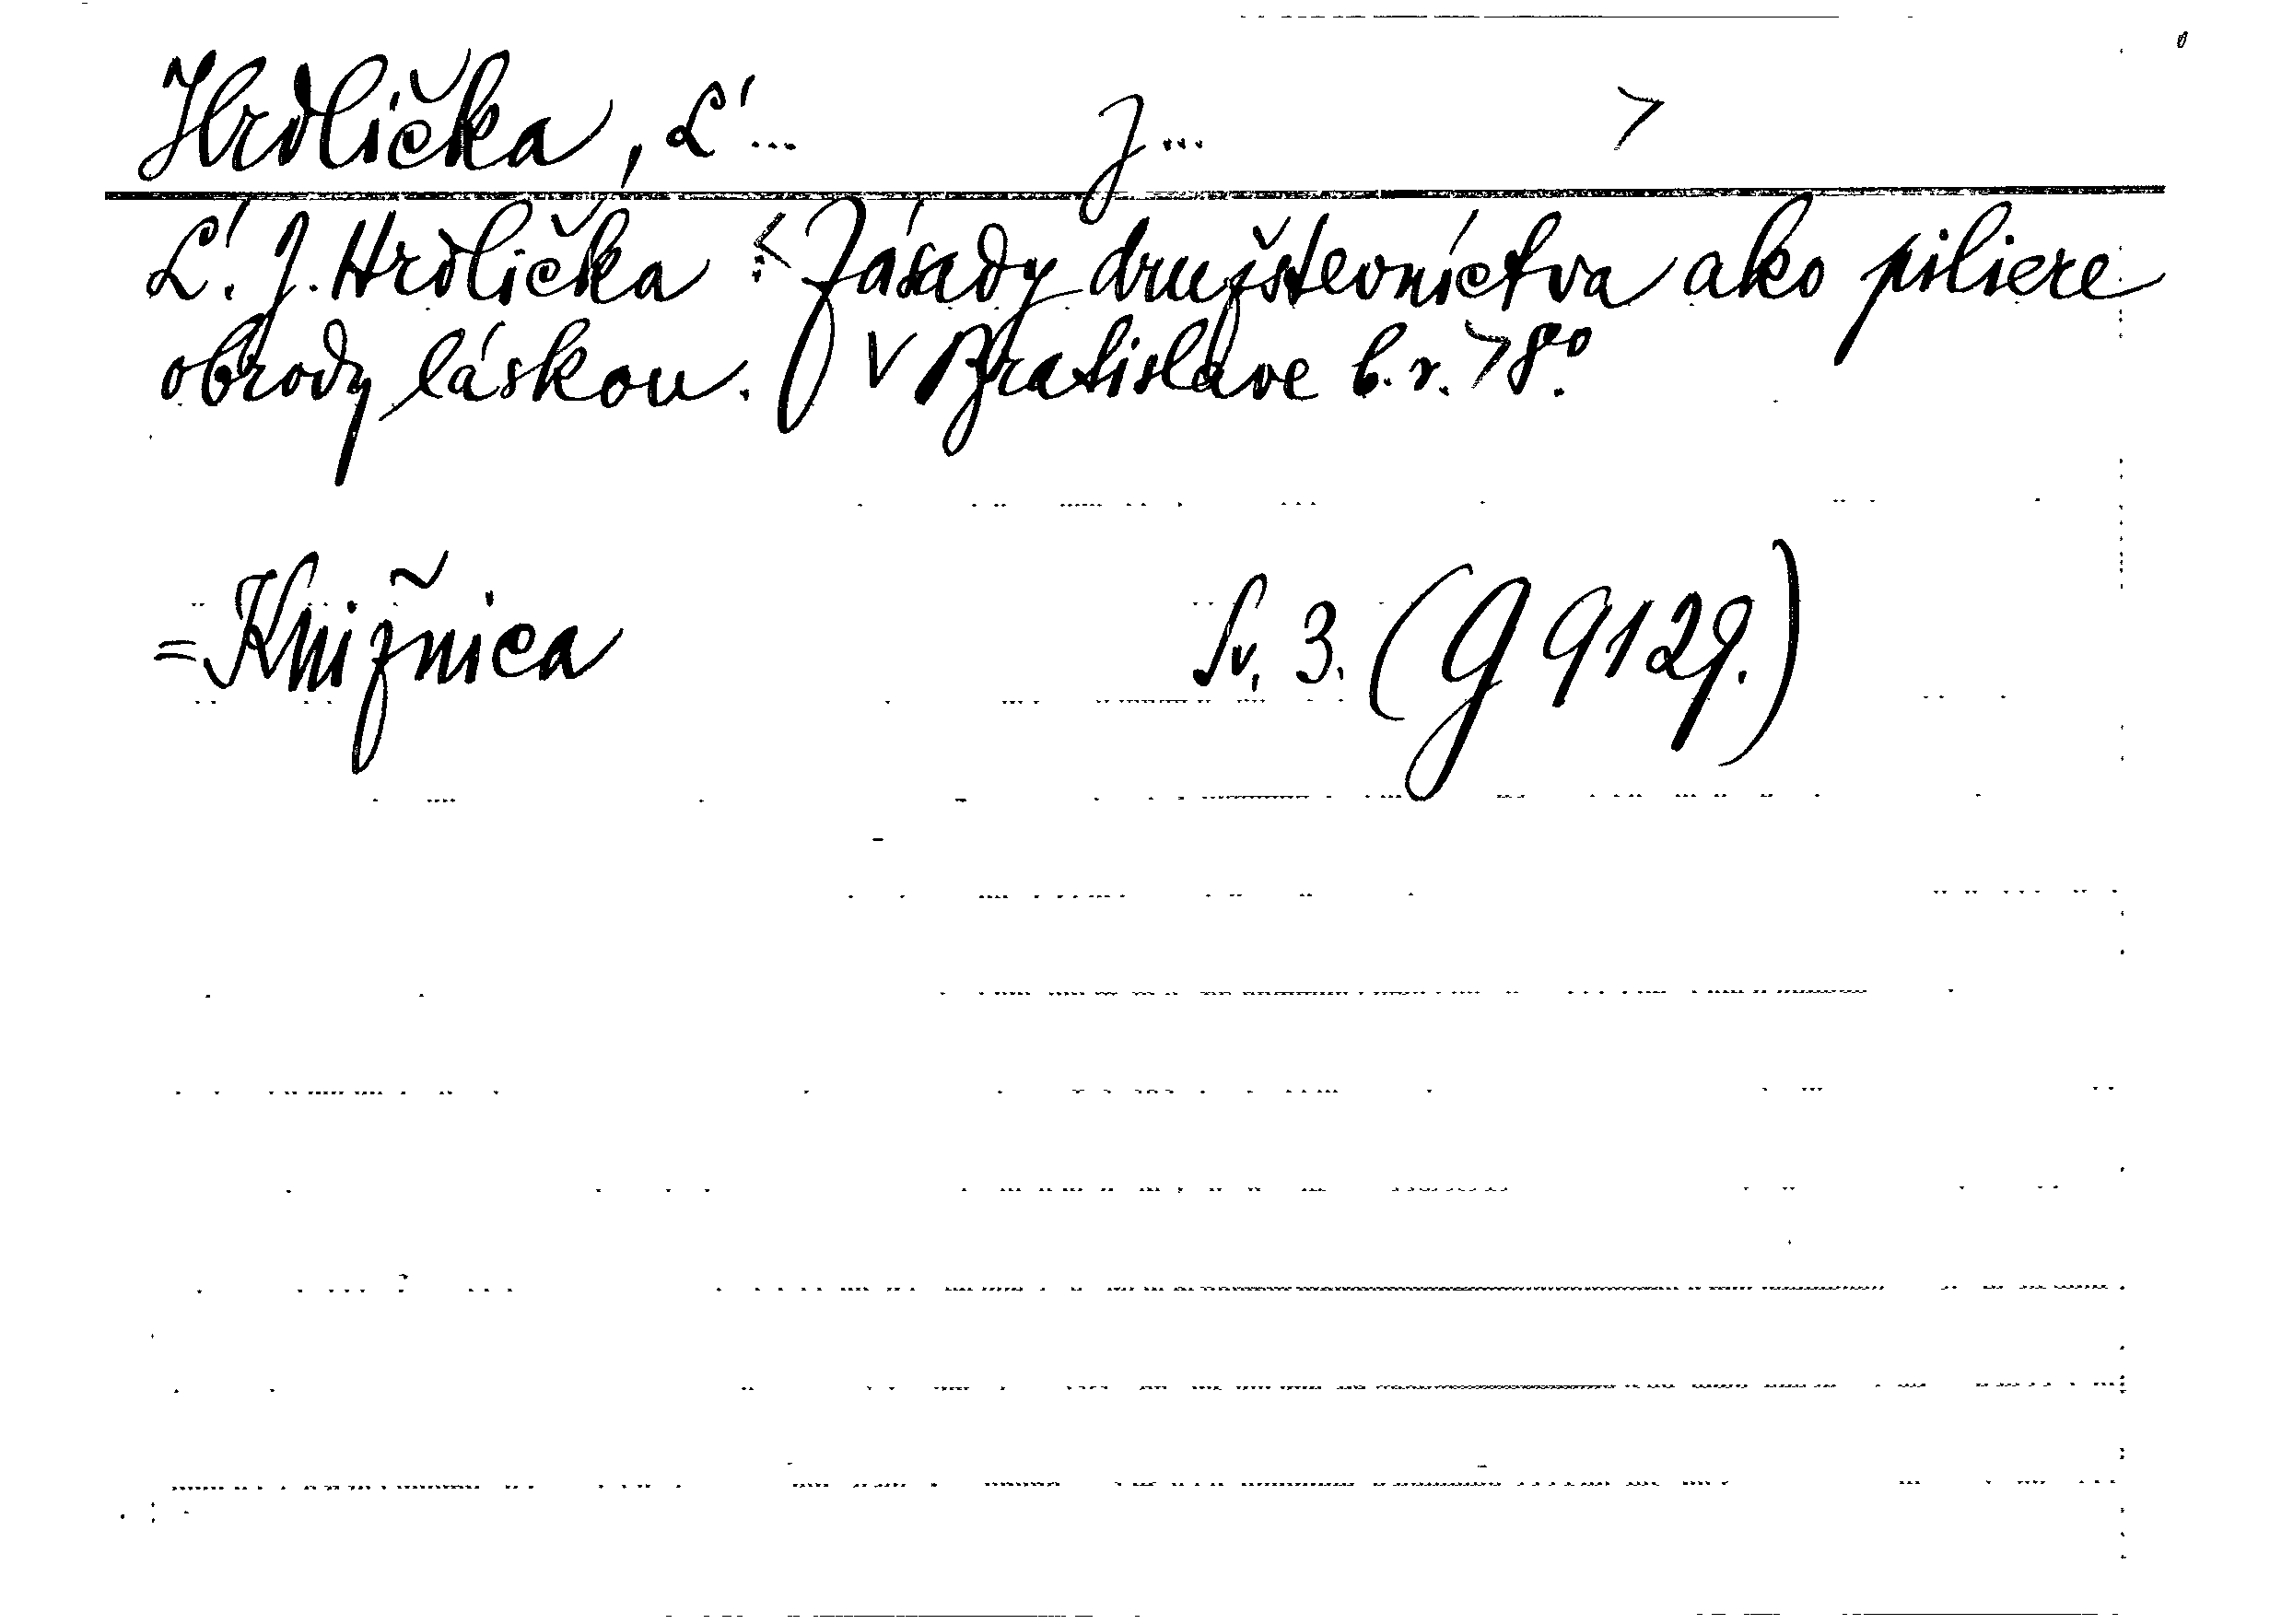 Hrdlička, Ľ... J... >
Ľ. J. Hrdlička : < Zásady družstevníctva ako piliere
obrody láskou. V Bratislave b. r. > 8°.
= Knižnica Sv. 3. (G 9129.)